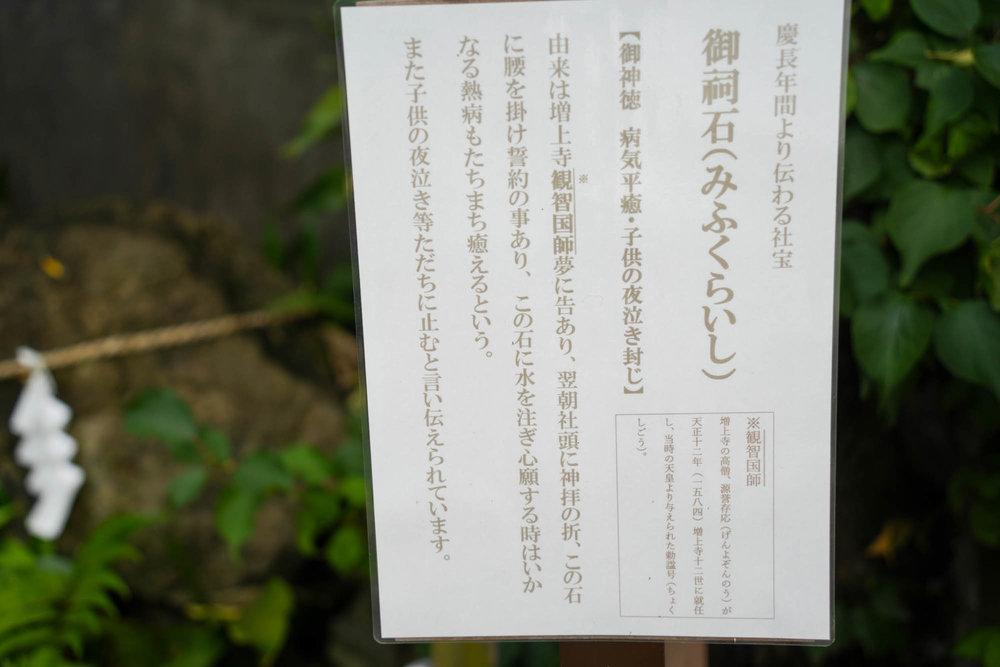 慶長年間より伝わる社宝
御祠石（みふくらいし）
【御神徳　病気平癒・子供の夜泣き封じ】
由来は増上寺観智国師※夢に告あり、翌朝社頭に神拝の折、この石
に腰を掛け誓約の事あり、この石に水を注ぎ心願する時はいか
なる熱病もたちまち癒えるという。
また子供の夜泣き等ただちに止むと言い伝えられています。
※観智国師
増上寺の高僧、源誉存応（げんよぞんのう）が
天正十二年（一五八四）増上寺十二世に就任
し、当時の天皇より与えられた勅諡号（ちょく
しごう）。